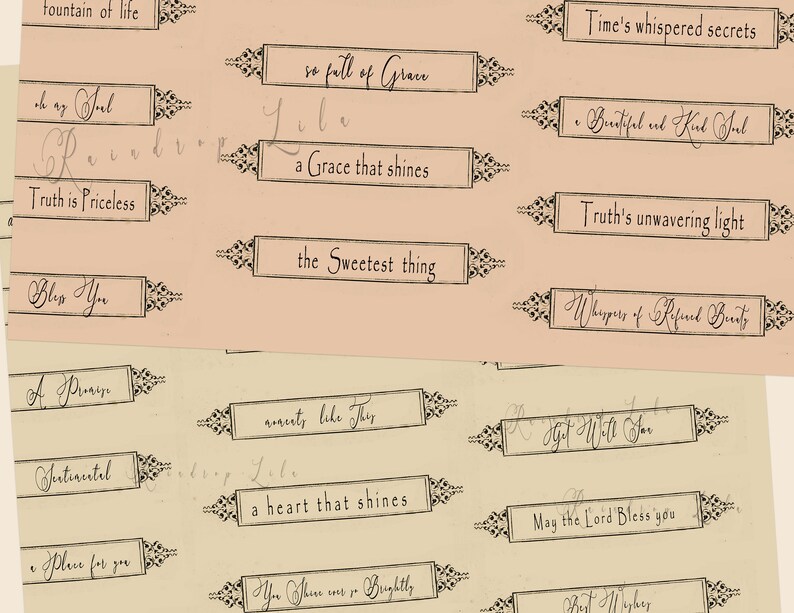 fountain of life
oh my Soul
Truth is Priceless
Bless You
so full of Grace
a Grace that shines
the Sweetest thing
Time's whispered secrets
a Beautiful and Kind Soul
Truth's unwavering light
Whispers of Refined Beauty
Raindrop Lila
A Promise
Sentimental
a Place for you
moments like This
a heart that shines
You Shine ever so Brightly
Get Well Soon
May the Lord Bless you
Best Wishes
Raindrop Lila
Raindrop Lila
Raindrop Lila